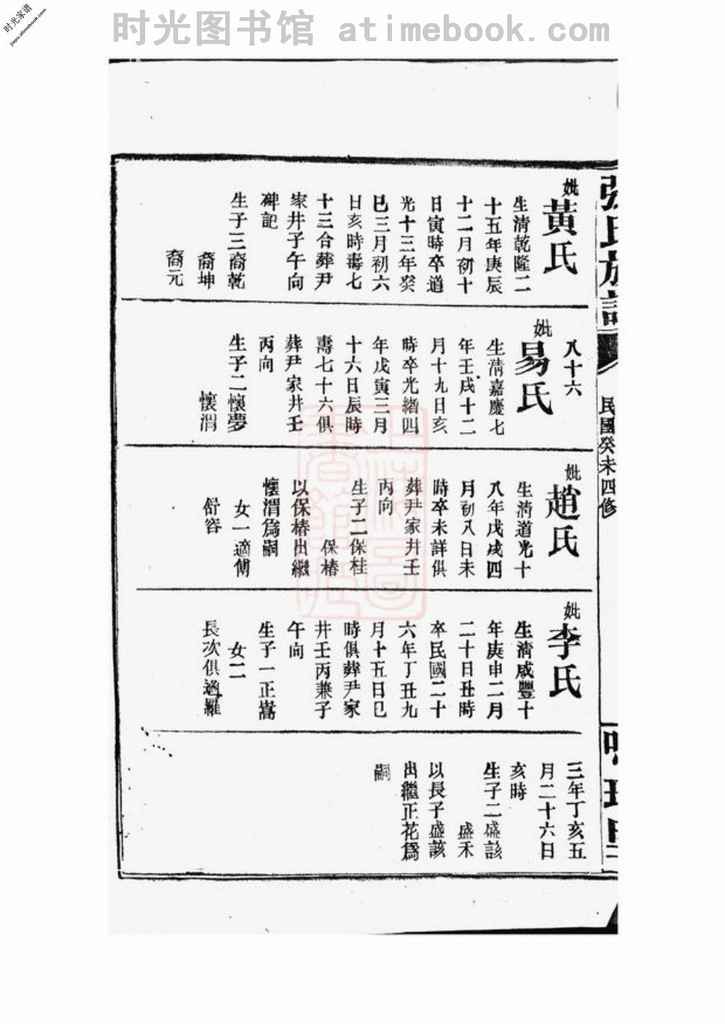 时光家谱
jiapu.atimebook.com
时光图书馆 atimebook.com
張氏族譜
民國癸未四修
妣黃氏
生清乾隆二
十五年庚辰
十二月初十
日寅時卒道
光十三年癸
巳三月初六
日亥時壽七
十三合葬尹
家井子午向
碑記
生子三裔乾
裔坤
裔元
八十六
妣易氏
生清嘉慶七
年壬戌十二
月十九日亥
時卒光緒四
年戊寅三月
十六日辰時
壽七十六俱
葬尹家井壬
丙向
生子二懷夢
懷渭
妣趙氏
生清道光十
八年戊戌四
月初八日未
時卒未詳俱
葬尹家井壬
丙向
生子二保桂
保椿
以保椿出繼
懷渭爲嗣
女一適傅
舒容
妣李氏
生清咸豐十
年庚申二月
二十日丑時
卒民國二十
六年丁丑九
月十五日巳
時俱葬尹家
井壬丙兼子
午向
生子一正嵩
女二
長次俱適羅
三年丁亥五
月二十六日
亥時
生子二盛該
盛禾
以長子盛該
出繼正花爲
嗣